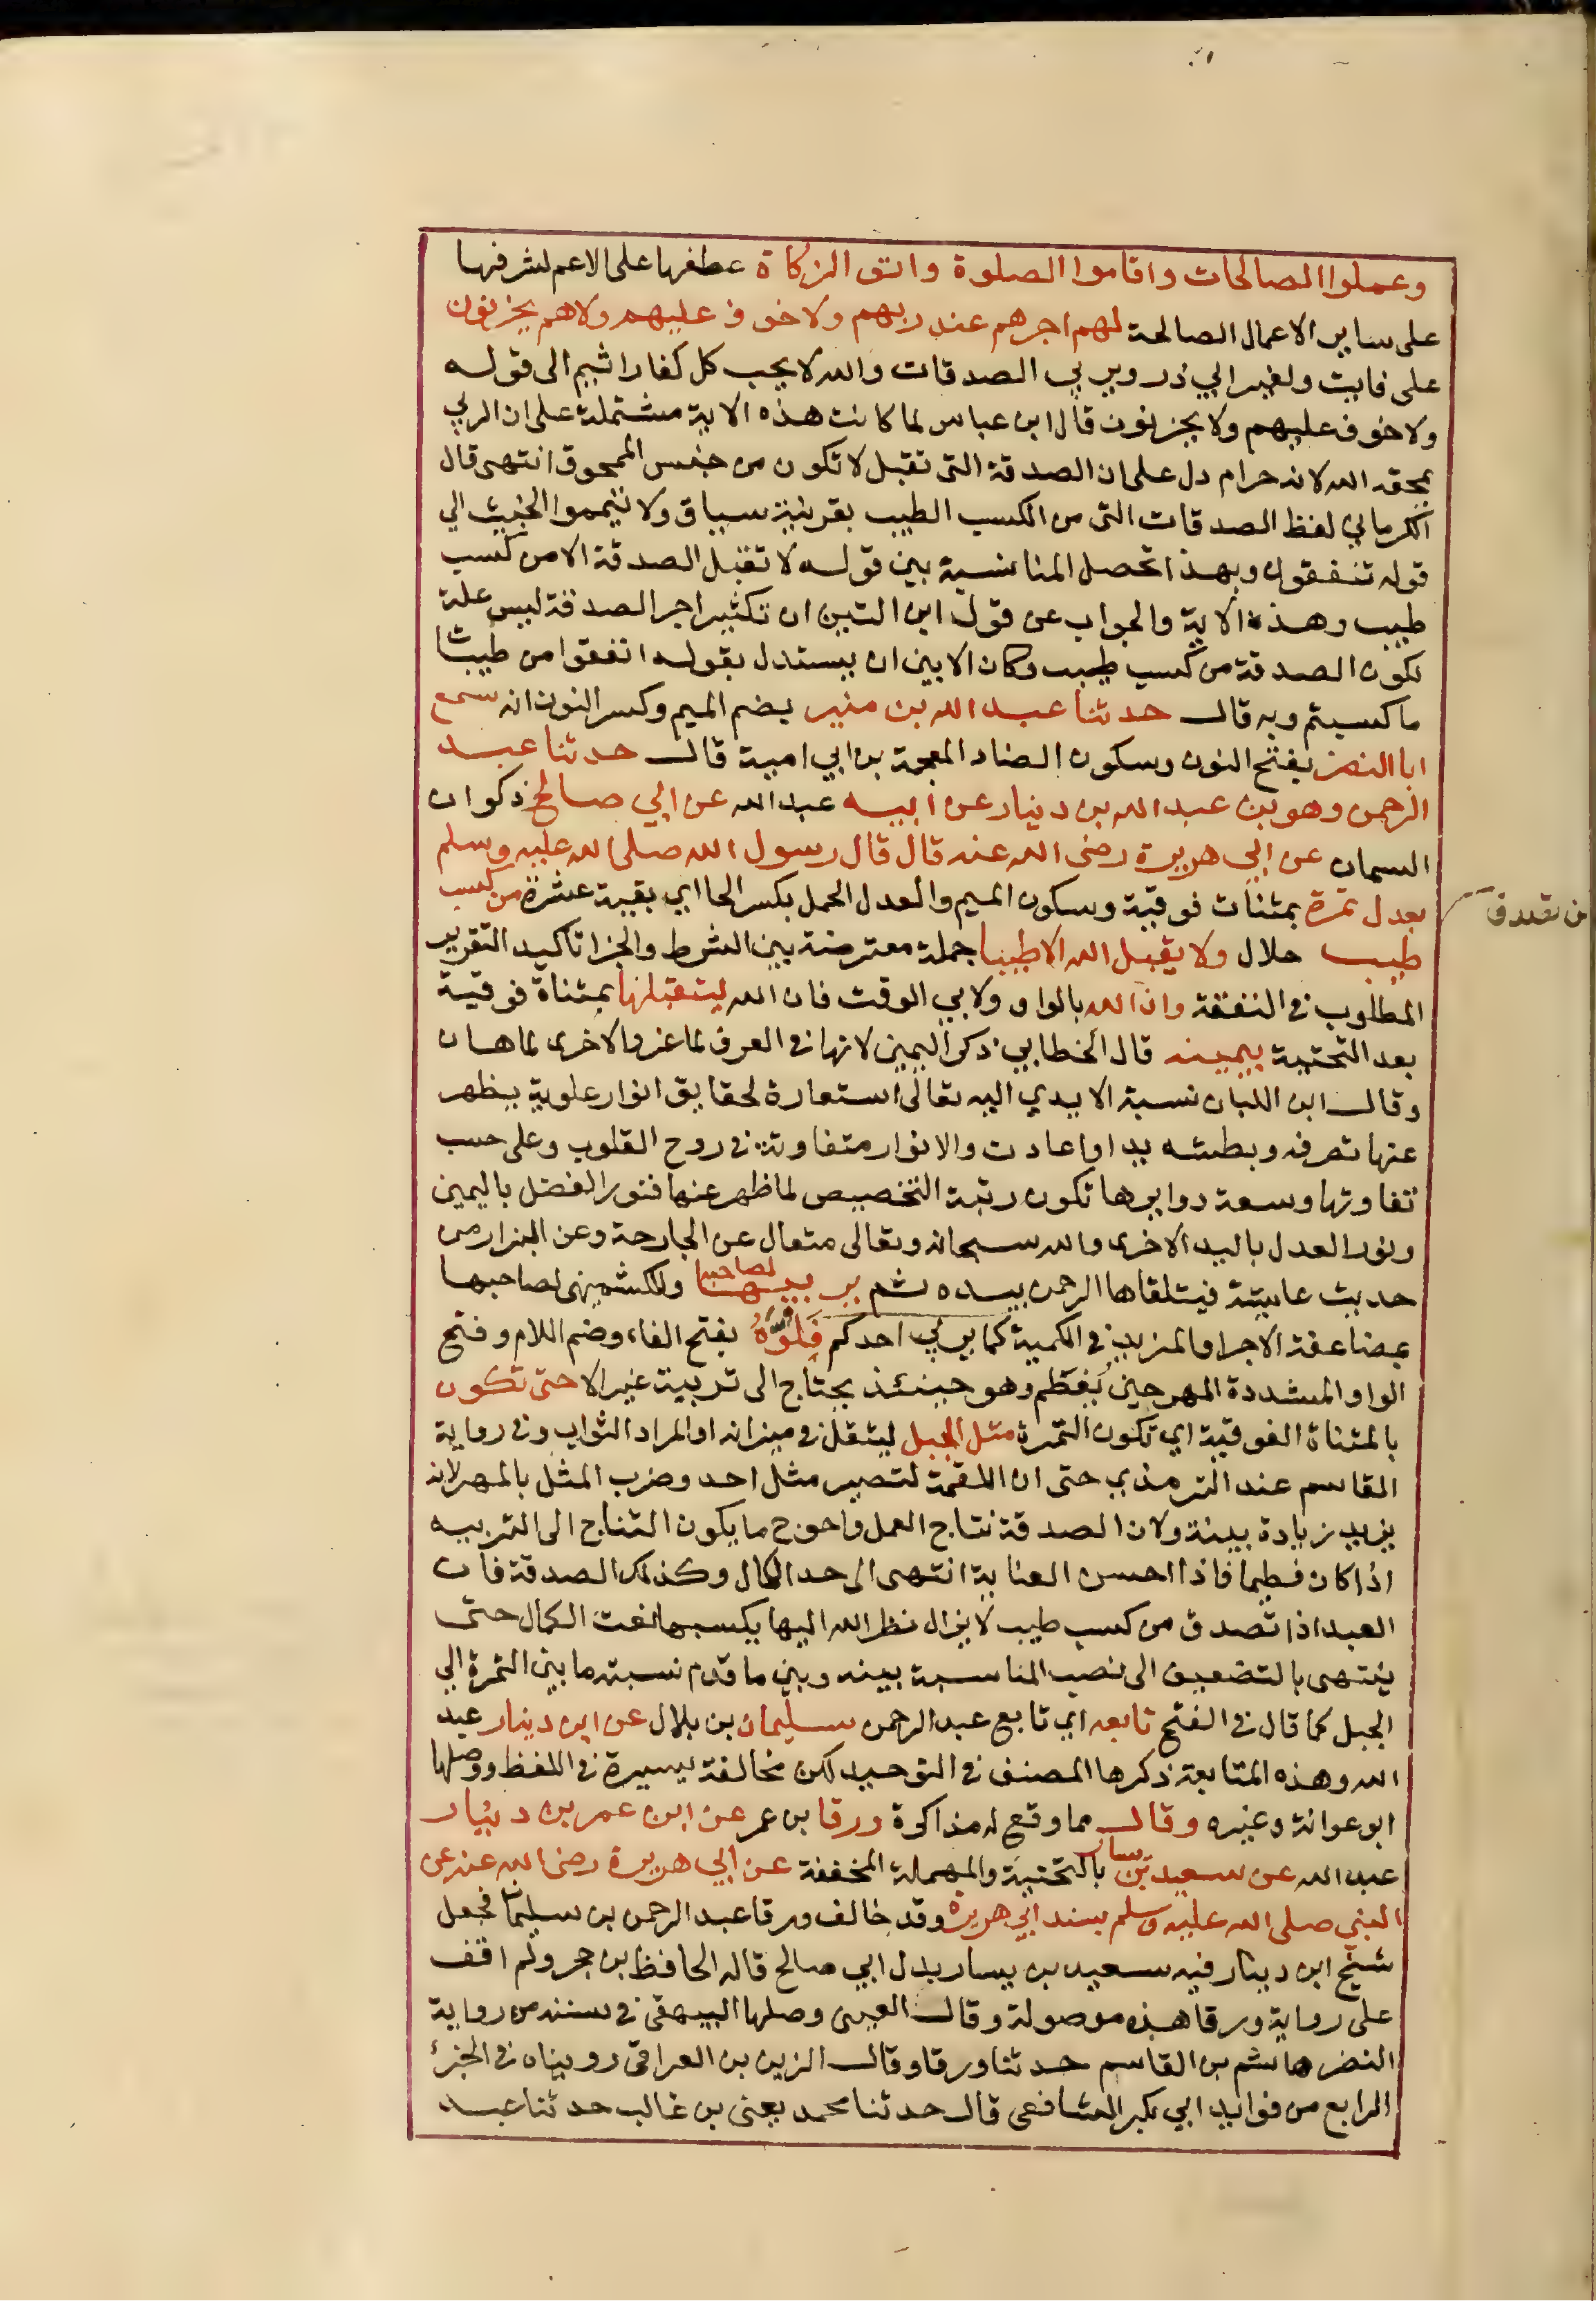 وعملوا الصالحات واقاموا الصلوة واتو الزكاة عطفها على الاعم لشرفها
على ساير الاعمال الصالحة لهم اجرهم عند ربهم ولا خوف عليهم ولا هم يحزنون
على فايت ولغير ابي ذر ويربي الصدقات والله لا يحب كل كفار اثيم الى قوله
ولا خوف عليهم ولا يحزنون قال ابن عباس لما كانت هذه الاية مشتملة على ان الربي
يمحقه الله لانه حرام دل على ان الصدقة التى تقبل لا تكون من جنس الممحوق انتهى قال
الكرماني لفظ الصدقات التى من الكسب الطيب بقرينة سياق ولا تيمموا الخبيث الي
قوله تنفقون وبهذا تحصل المناسبة بين قوله لا تقبل الصدقة الا من كسب
طيب وهذه الاية والجواب عن قول ابن التين ان تكثير اجر الصدقة ليس علة
لكون الصدقة من كسب طيب وكان الابين ان يستدل بقوله انفقوا من طيبات
ما كسبتم وبه قال حدثنا عبد الله بن منير بضم الميم وكسر النون انه سمع
ابا النضر بفتح النون وسكون الضاد المعجمة بن ابي امية قال حدثنا عبد
الرحمن وهو بن عبد الله بن دينار عن ابيه عبد الله عن ابي صالح ذكوان
السمان عن ابي هريرة رضى الله عنه قال قال رسول الله صلى الله عليه وسلم
من تصدق
بعدل تمرة بمثنات فوقية وسكون الميم والعدل الحمل بكسر الحا اي بقيمة عشرة من كسب
طيب حلال ولا يقبل الله الا طيبا جملة معترضة بين الشرط والجزا تاكيد التقرير
المطلوب فى النفقة وان الله بالواو ولابي الوقت فان الله ليتقبلها بمثناة فوقية
بعد التحتية بيمينه قال الخطابي ذكر اليمين لانها فى العرف لما عز والاخرى لما هان
وقال ابن اللبان نسبة الايدي اليه تعالى استعارة لحقايق انوار علوية يظهر
عنها تصرفه وبطشه بدا واعادت والانوار متفاوتة فى روح القلوب وعلى حسب
تفاوتها وسعة دوايرها تكون رتبة التخصيص لما ظهر عنها فنور الفضل باليمين
ونور العدل باليد الاخرى والله سبحانه وتعالى متعال عن الجارحة وعن البزار من
حديث عايشة فيتلقاها الرحمن بيده ثم يربيها لصاحبها وللكشميهنى لصاحبها
بمضاعفة الاجر او المزيد فى الكمية كما يربي احدكم فَلُوَّهُ بفتح الفاء وضم اللام وفتح
الواو المشددة المهر حين يُفطم وهو حينئذ يحتاج الى تربية غير الا حتى تكون
بالمثناة الفوقية اي تكون التمرة مثل الجبل ليثقل فى ميزانه او المراد الثواب وفى رواية
القاسم عند الترمذي حتى ان اللقمة لتصير مثل احد وضرب المثل بالمهر لانه
يزيد زيادة بينة ولان الصدقة نتاج العمل واحوج ما يكون النتاج الى التربيه
اذا كان فطيما فاذا احسن العناية انتهى الى حد الكمال وكذلك الصدقة فان
العبد اذا تصدق من كسب طيب لا يزال نظر الله اليها يكسبها نعت الكمال حتى
ينتهى بالتضعيف الى نصب المناسبة بينه وبين ما قدم نسبة ما بين التمرة الي
الجبل كما قال فى الفتح تابعه اي تابع عبد الرحمن سليمان بن بلال عن ابن دينار عبد
الله وهذه المتابعة ذكرها المصنف فى التوحيد لكن مخالفة يسيرة فى اللفظ ووصلها
ابو عوانة وغيره وقال مما وقع له مذاكرة ورقا بن عمر عن ابن عمر بن دينار
عبد الله عن سعيد بن يسار بالتحتية والمهملة المخففة عن ابي هريرة رضى الله عنه عن
النبي صلى الله عليه وسلم بسند ابي هريرة وقد خالف ورقا عبد الرحمن بن سليمان فجعل
شيخ ابن دينار فيه سعيد بن يسار بدل ابي صالح قاله الحافظ بن حجر ولم اقف
على رواية ورقا هذه موصولة وقال العينى وصلها البيهقى فى سننه من رواية
النضر هاشم بن القاسم حدثنا ورقا وقال الزين بن العراقى رويناه فى الجزء
الرابع من فوايد ابي بكر الشافعى قال حدثنا محمد يعنى بن غالب حدثنا عبد